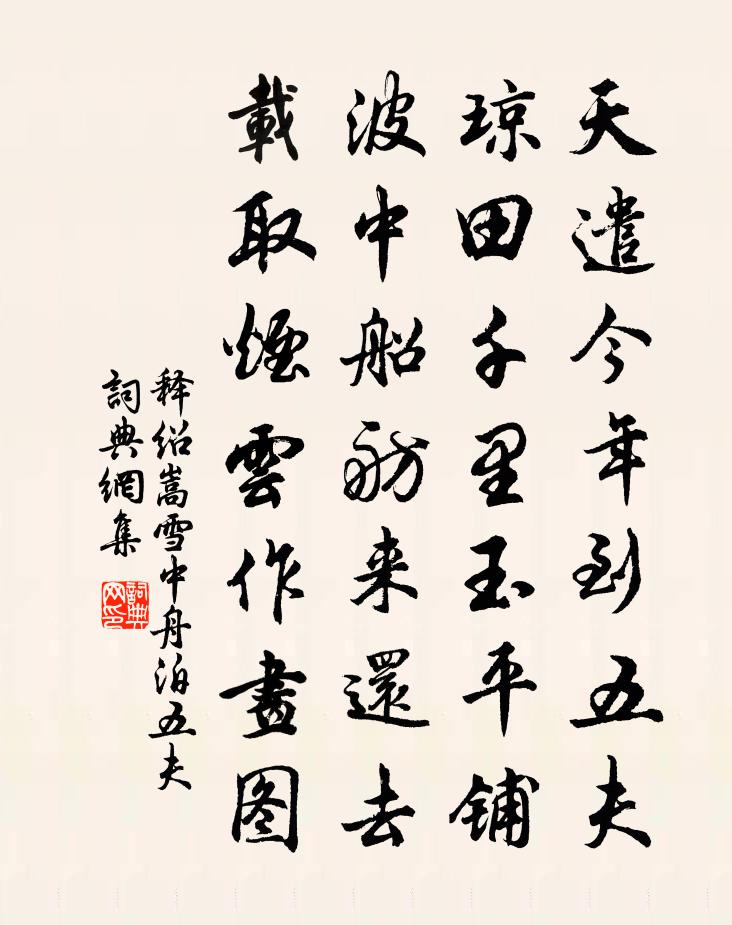 天遣今年到五夫
琼田千里玉平铺
波中船舫来還去
載取煙雲作畫图
释绍嵩雪中舟泊五夫
詞典網集
詞典网印